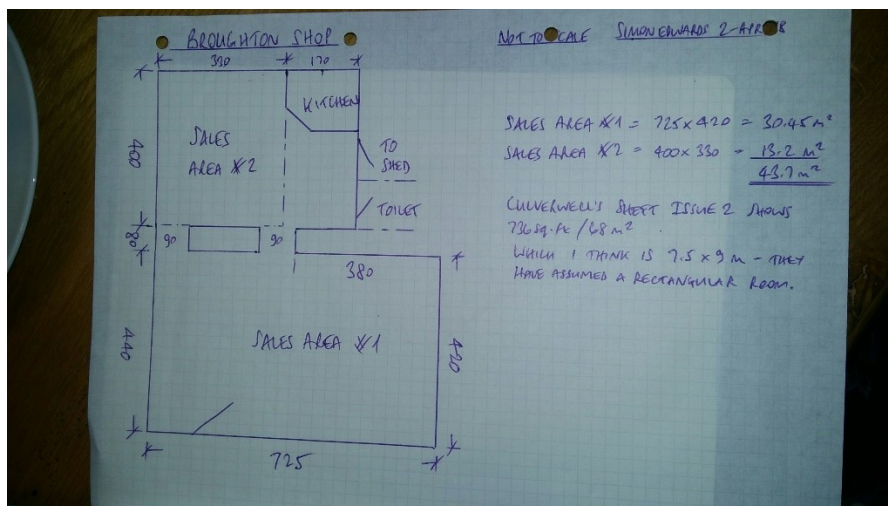 BROUGHTON SHOP
NOT TO SCALE SIMON EDWARDS 2-APR 8
330 170
KITCHEN
SALES
AREA #2
400
TO
SHED
TOILET
80
90 90
380
SALES AREA #1
440
420
725
SALES AREA #1 = 725 x 420 = 30.45 m²
SALES AREA #2 = 400 x 330 = 13.2 m²
43.7 m²
CULVERWELL'S SHEET ISSUE 2 SHOWS
736 sq. ft / 68 m².
WHICH I THINK IS 7.5 x 9 m - THEY
HAVE ASSUMED A RECTANGULAR ROOM.